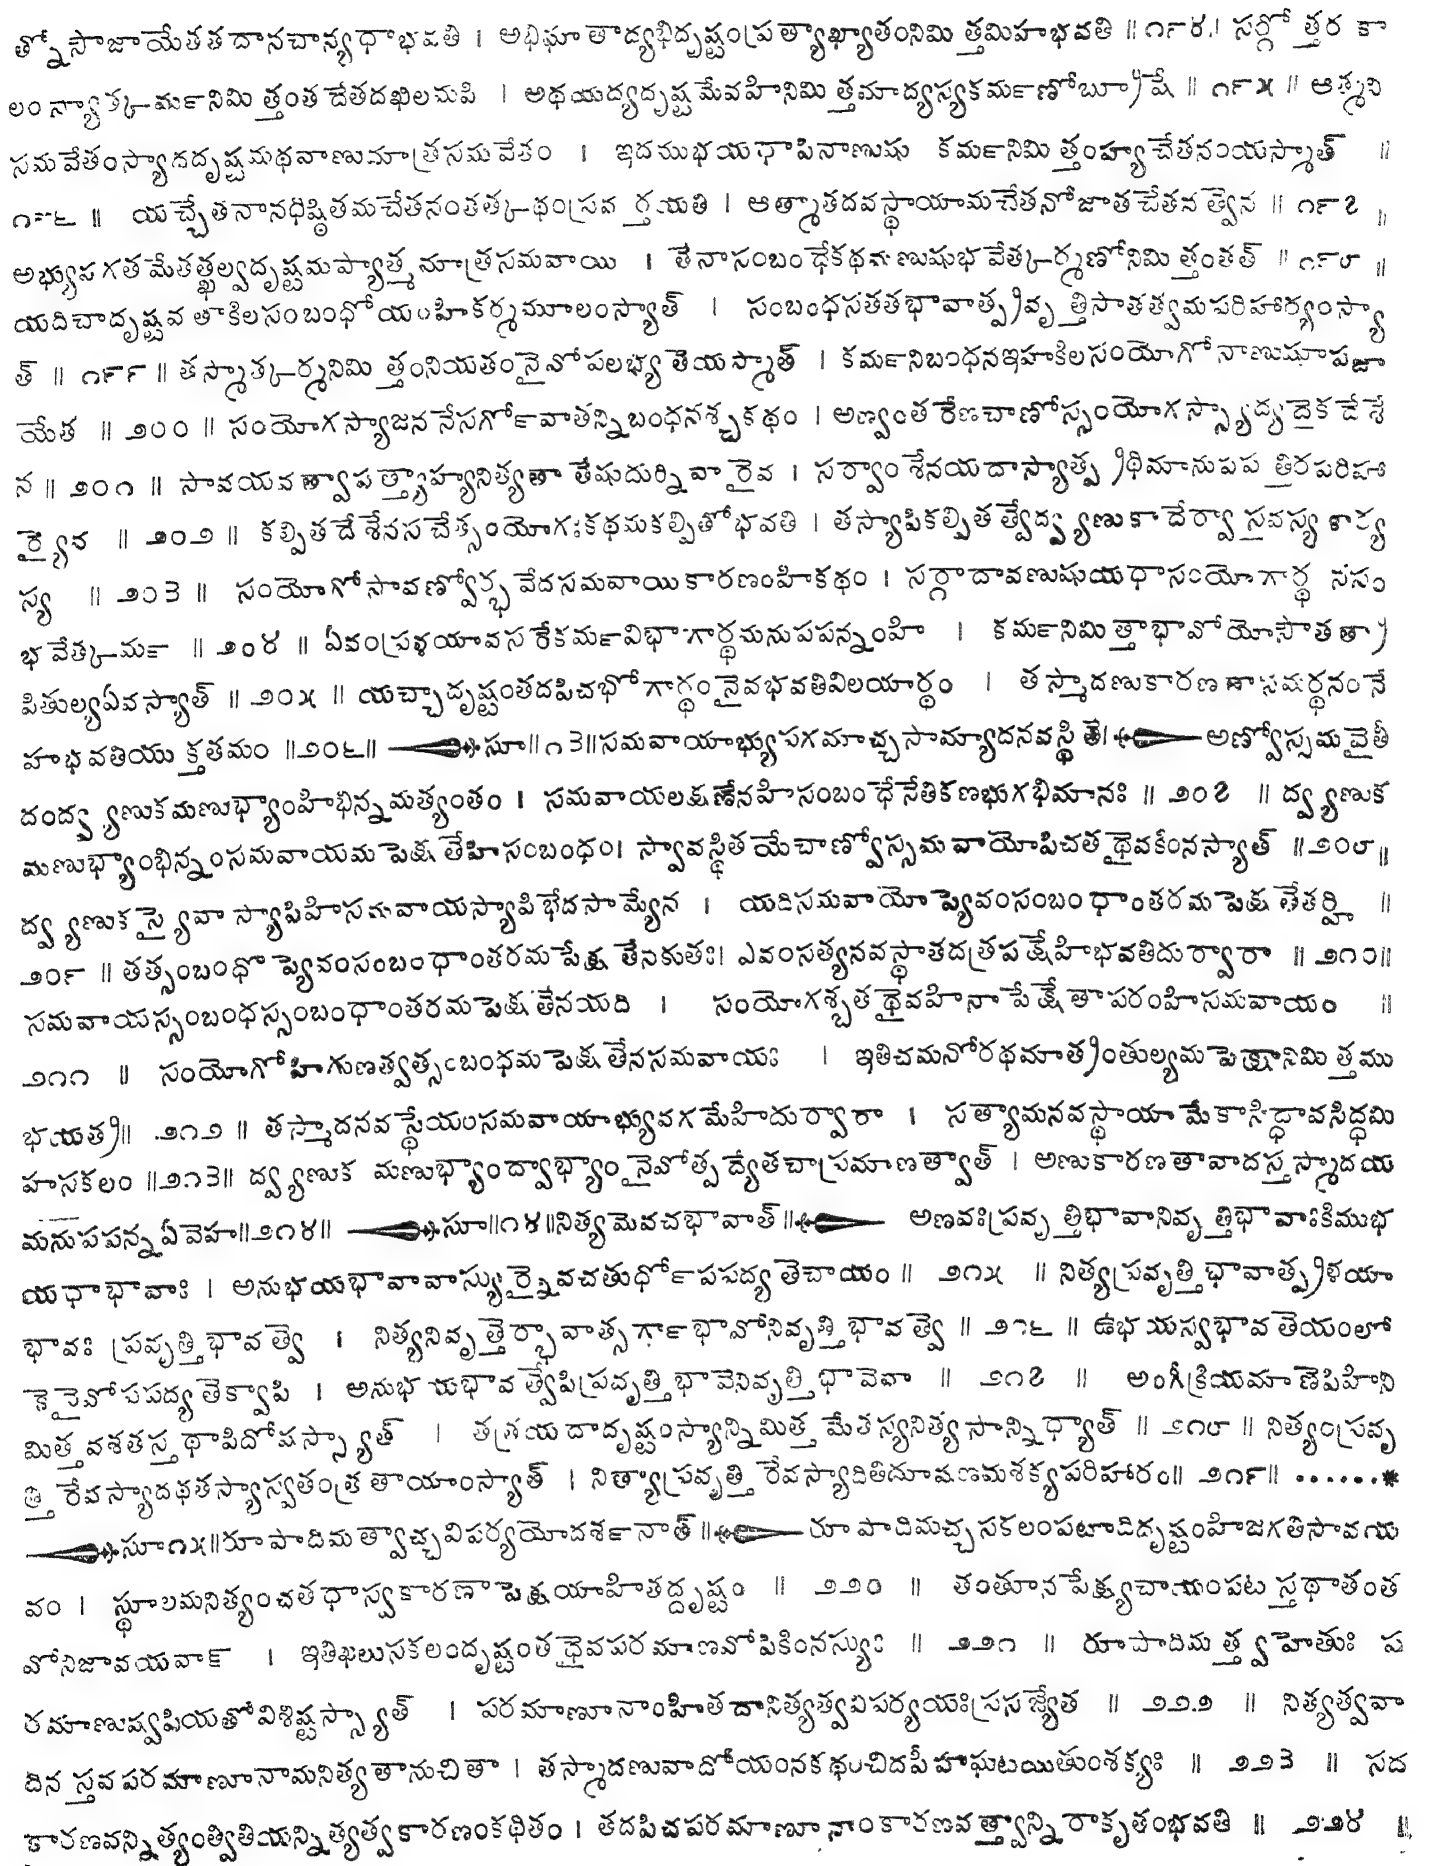 త్నోసౌజాయేతతదానచాన్యధాభవతి । అభిఘాతాద్యభిదృష్టంప్రత్యాఖ్యాతంనిమిత్తమిహభవతి ॥ ౧౯౪ ॥ సర్గోత్తరకా
లంస్యాత్కర్మనిమిత్తంతచేతదఖిలమపి । అథయద్యదృష్టమేవహినిమిత్తమాద్యస్యకర్మణోబ్రూషే ॥ ౧౯౫ ॥ ఆత్మని
సమవేతంస్యాదదృష్టమథవాణుమాత్రసమవేతం । ఇదముభయథాపినాణుషు కర్మనిమిత్తంహ్యచేతనంయస్మాత్ ॥
౧౯౬ ॥ యచ్చేతనానధిష్ఠితమచేతనంతత్కథంప్రవర్తయతి । ఆత్మాతదవస్థాయామచేతనోజాతచేతనత్వేన ॥ ౧౯౭ ॥
అభ్యుపగతమేతత్ఖల్వదృష్టమప్యాత్మమాత్రసమవాయి । తేనాసంబంధేకథమణుషుభవేత్కర్మణోనిమిత్తంతత్ ॥ ౧౯౮ ॥
యదిచాదృష్టవతాకిలసంబంధోయంహికర్మమూలంస్యాత్ । సంబంధసతతభావాత్ప్రవృత్తిసాతత్వమపరిహార్యంస్యా
త్ ॥ ౧౯౯ ॥ తస్మాత్కర్మనిమిత్తంనియతంనైవోపలభ్యతెయస్మాత్ । కర్మనిబంధనఇహకిలసంయోగోనాణుషూపజా
యేత ॥ ౨౦౦ ॥ సంయోగస్యాజననేసర్గోవాతన్నిబంధనశ్చకథం । అణ్వంతరేణచాణోస్సంయోగస్స్యాద్యదైకదేశే
న ॥ ౨౦౧ ॥ సావయవత్వాపత్త్యాహ్యనిత్యతాతేషుదుర్నివారైవ । సర్వాంశేనయదాస్యాత్ప్రథిమానుపపత్తిరపరిహా
ర్యైవ ॥ ౨౦౨ ॥ కల్పితదేశేనసచేత్సంయోగఃకథమకల్పితోభవతి । తస్యాపికల్పితత్వేద్వ్యణుకాదేర్వాసైవస్యకార్య
స్య ॥ ౨౦౩ ॥ సంయోగోసావణ్వోర్భవేదసమవాయికారణంహికథం । సర్గాదావణుషుయథాసంయోగార్థ నసం
భవేత్కర్మ ॥ ౨౦౪ ॥ ఏవంప్రళయావసరేకర్మవిభాగార్థమనుపపన్నంహి । కర్మనిమిత్తాభావోయోసౌతత్రా
పితుల్యఏవస్యాత్ ॥ ౨౦౫ ॥ యచ్చాదృష్టంతదపిచభోగార్థంనైవభవతివిలయార్థం । తస్మాదణుకారణతాసమర్థనంనే
హభవతియుక్తతమం ॥౨౦౬॥ సూ॥౧౩॥సమవాయాభ్యుపగమాచ్చసామ్యాదనవస్థితే। అణ్వోస్సమవైతీ
దంద్వ్యణుకమణుభ్యాంహిభిన్నమత్యంతం । సమవాయలక్షణేనహిసంబంధేనేతికణభుగభిమానః ॥ ౨౦౭ ॥ ద్వ్యణుక
మణుభ్యాంభిన్నంసమవాయమపెక్షతేహిసంబంధం। స్వావస్థితయేచాణ్వోస్సమవాయోపిచతథైవకింనస్యాత్ ॥౨౦౮॥
ద్వ్యణుకస్యైవాస్యాపిహిసమవాయస్యాపిభేదసామ్యేన । యదిసమవాయోప్యెవంసంబంధాంతరమపెక్షతేతర్హి ॥
౨౦౯ ॥ తత్సంబంధోప్యెవంసంబంధాంతరమపేక్షతేనకుతః। ఎవంసత్యనవస్థాతదత్రపక్షేహిభవతిదుర్వారా ॥ ౨౧౦॥
సమవాయస్సంబంధస్సంబంధాంతరమపెక్షతేనయది । సంయోగశ్చతథైవహినాపేక్షేతాపరంహిసమవాయం ॥
౨౧౧ ॥ సంయోగోహిగుణత్వత్సంబంధమపెక్షతేనసమవాయః । ఇతిచమనోరథమాత్రంతుల్యమపెక్షానిమిత్తము
భయత్ర॥ ౨౧౨ ॥ తస్మాదనవస్థేయంసమవాయాభ్యువగమేహిదుర్వారా । సత్యామనవస్థాయామేకాసిద్ధావసిద్ధమి
హసకలం ॥౨౧౩॥ ద్వ్యణుక మణుభ్యాంద్వాభ్యాంనైవోత్పద్యేతచాప్రమాణత్వాత్ । అణుకారణతావాదస్తస్మాదయ
మనుపపన్నఏవేహ॥౨౧౪॥ సూ॥౧౪॥నిత్యమెవచభావాత్॥ అణవఃప్రవృత్తిభావానివృత్తిభావాఃకిముభ
యథాభావాః । అనుభయభావావాస్యుర్నైవచతుర్థోపపద్యతెచాయం॥ ౨౧౫ ॥ నిత్యప్రవృత్తిభావాత్ప్రళయా
భావః ప్రవృత్తిభావత్వె । నిత్యనివృత్తెర్భావాత్సర్గాభావోనివృత్తిభావత్వె ॥ ౨౧౬ ॥ ఉభయస్వభావతెయంలో
కెనైవోపపద్యతెక్వాపి । అనుభయభావత్వేపిప్రవృత్తిభావెనివృత్తిభావెవా ॥ ౨౧౭ ॥ అంగీక్రియమాణెపిహిని
మిత్తవశతస్తథాపిదోషస్స్యాత్ । తత్రయదాదృష్టంస్యాన్నిమిత్తమేతస్యనిత్యసాన్నిధ్యాత్ ॥ ౨౧౮ ॥ నిత్యంప్రవృ
త్తిరేవస్యాదథతస్యాస్వతంత్రతాయాంస్యాత్ । నిత్యాప్రవృత్తిరేవస్యాదితిదూషణమశక్యపరిహారం॥ ౨౧౯॥ ......*
సూ౧౫॥రూపాదిమత్వాచ్చవిపర్యయోదర్శనాత్॥ రూపాదిమచ్చసకలంపటాదిదృష్టంహిజగతిసావయ
వం । స్థూలమనిత్యంచతథాస్వకారణాపెక్షయాహితద్దృష్టం ॥ ౨౨౦ ॥ తంతూనపేక్ష్యచాయంపటస్తథాతంత
వోనిజావయవాన్ । ఇతిఖలుసకలందృష్టంతథైవపరమాణవోపికింనస్యుః ॥ ౨౨౧ ॥ రూపాదిమత్త్వహెతుః ప
రమాణుష్వపియతోవిశిష్టస్స్యాత్ । పరమాణూనాంహితదానిత్యత్వవిపర్యయఃప్రసజ్యేత ॥ ౨౨౨ ॥ నిత్యత్వవా
దినస్తవపరమాణూనామనిత్యతానుచితా । తస్మాదణువాదోయంనకథంచిదపీహఘటయితుంశక్యః ॥ ౨౨౩ ॥ సద
కారణవన్నిత్యంత్వితియన్నిత్యత్వకారణంకథితం । తదపిచపరమాణూనాంకారణవత్త్వాన్నిరాకృతంభవతి ॥ ౨౨౪ ॥